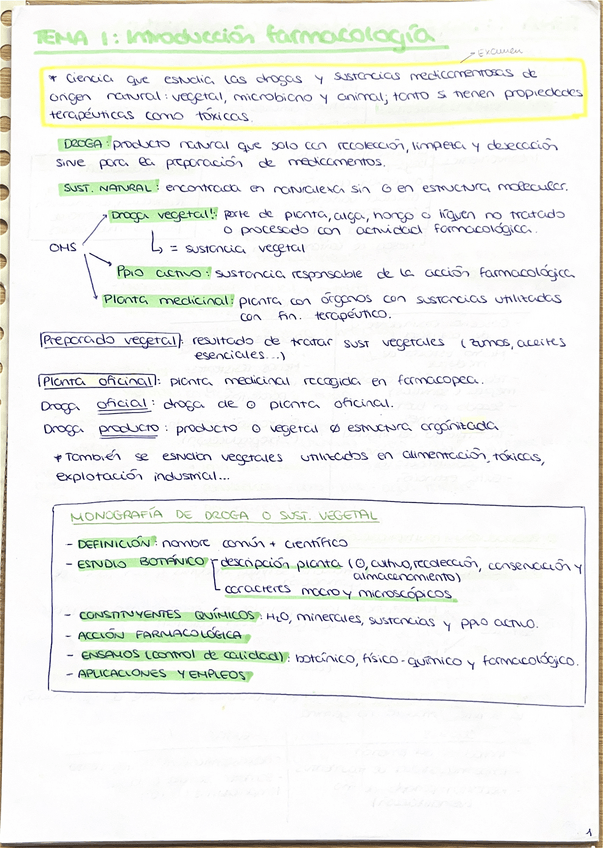 TEMA 1: Introducción farmacología
Examen
* Ciencia que estudia las drogas y sustancias medicamentosas de
origen natural: vegetal, microbiano y animal; tanto si tienen propiedades
terapéuticas como tóxicas.
DROGA: producto natural que solo con recolección, limpieza y desecación
sirve para la preparación de medicamentos.
SUST. NATURAL: encontrada en naturaleza sin Θ en estructura molecular.
Droga vegetal: parte de planta, alga, hongo o liquen no tratado
o procesado con actividad farmacológica.
↳ = sustancia vegetal
OMS
Ppio activo: sustancia responsable de la acción farmacológica
Planta medicinal: planta con órganos con sustancias utilizadas
con fin. terapéutico.
Preparado vegetal: resultado de tratar sust vegetales (zumos, aceites
esenciales...)
Planta oficinal: planta medicinal recogida en farmacopea.
Droga oficial: droga de planta oficinal.
Droga producto: producto o vegetal ∅ estructura organizada
* También se estudian vegetales utilizados en alimentación, tóxicas,
explotación industrial...
MONOGRAFÍA DE DROGA O SUST. VEGETAL
- DEFINICIÓN: nombre común + científico
- ESTUDIO BOTÁNICO descripción planta (O, cultivo, recolección, conservación y
almacenamiento)
caracteres macro y microscópicos
- CONSTITUYENTES QUÍMICOS: H2O, minerales, sustancias y ppio activo.
- ACCIÓN FARMACOLÓGICA
- ENSAYOS (control de calidad): botánico, físico-químico y farmacológico.
- APLICACIONES Y EMPLEOS
1